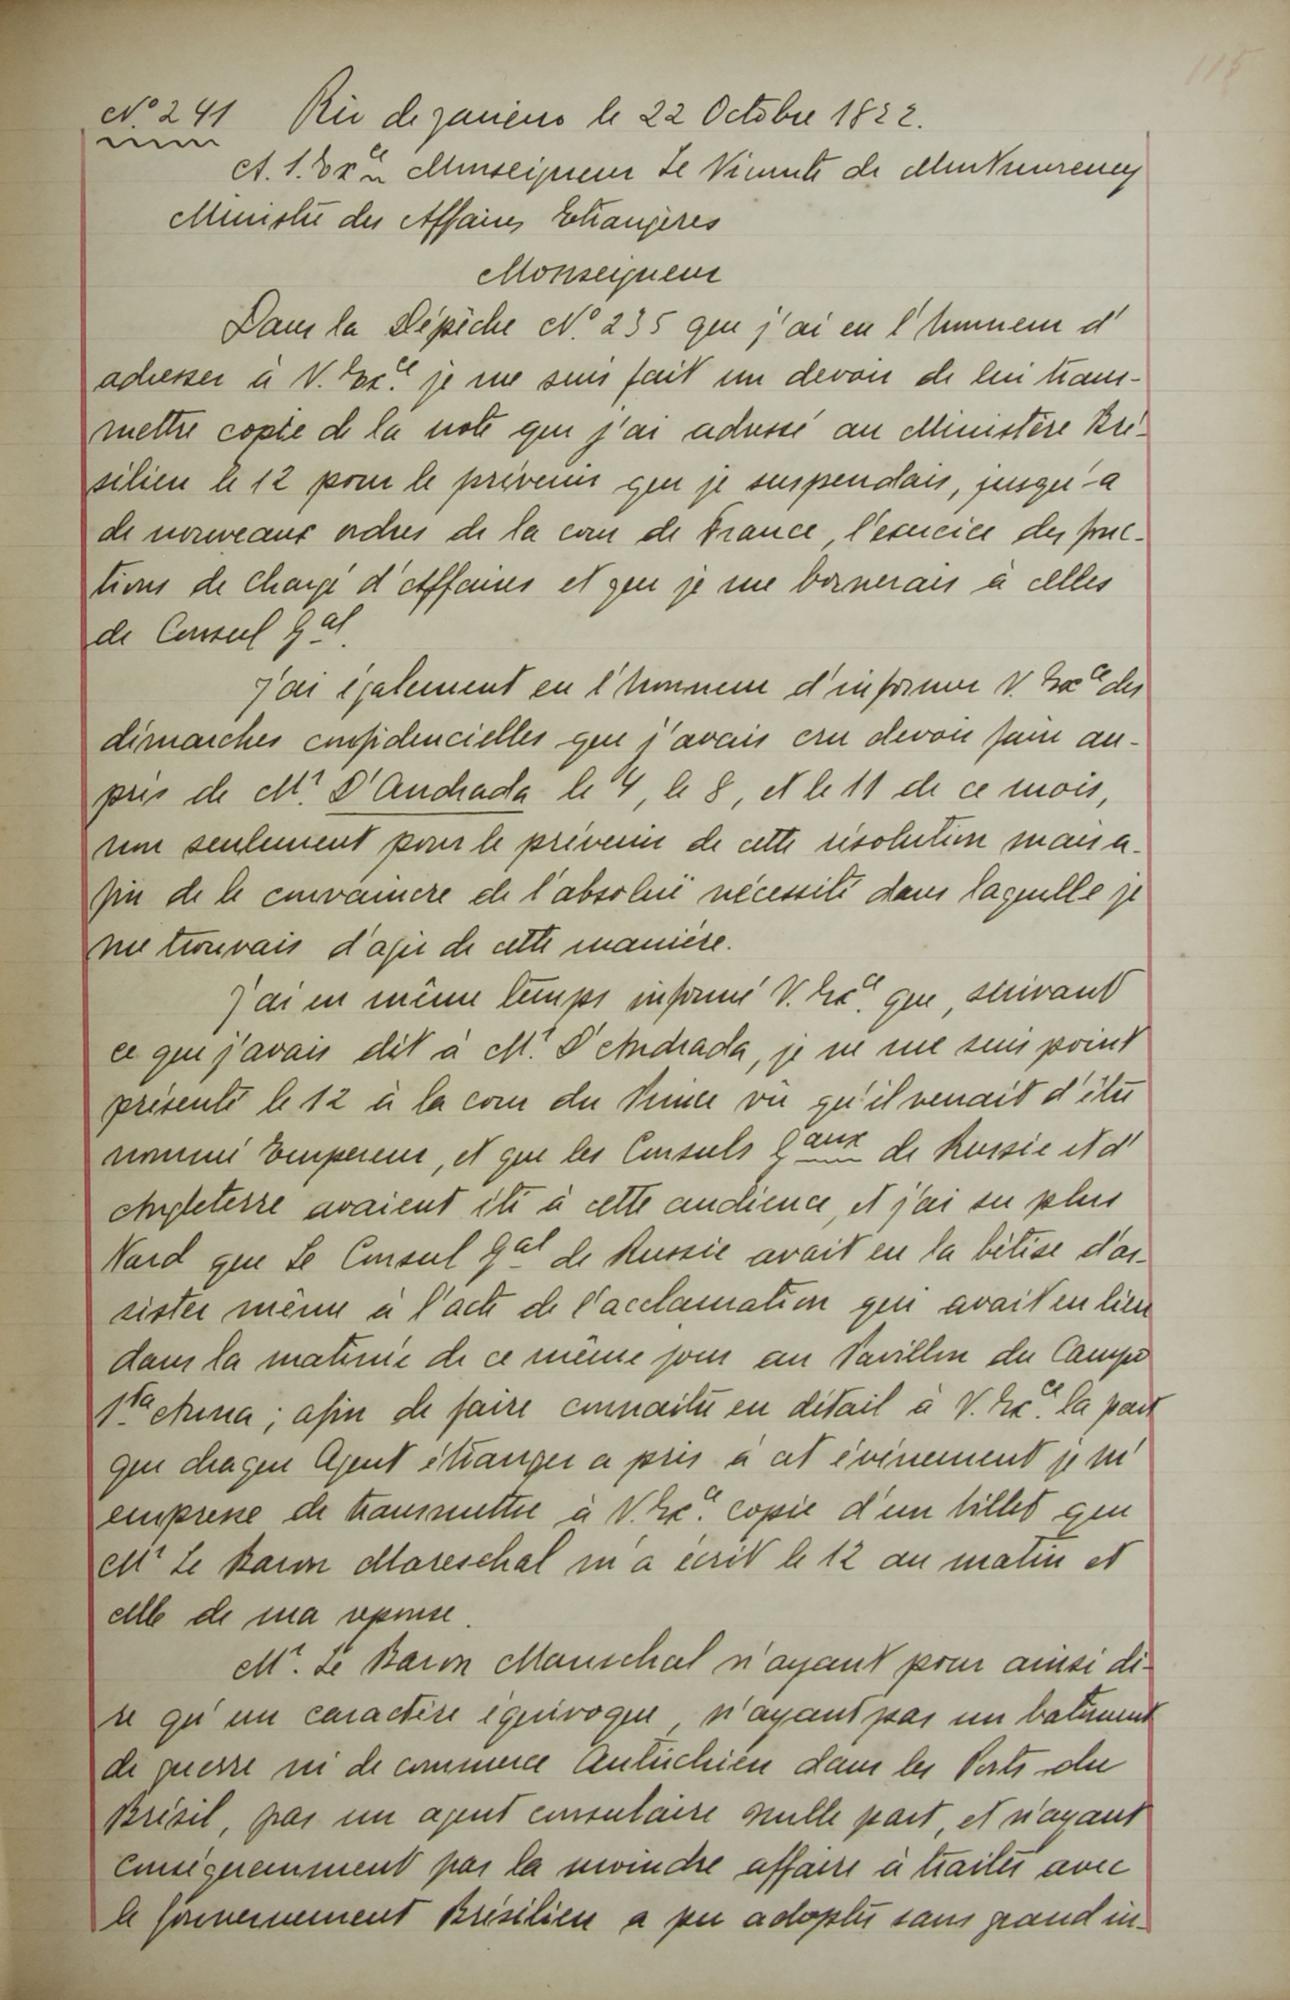 115
N.º 241 Rio de janeiro le 22 Octobre 1822.
A. S. Exce Monseigneur Le Vicomte de Montmorency
Ministre des Affaires Etrangères
Monseigneur
Dans la Dépèche N.º 235 que j'ai eu l'honneur d'
adresser à V. Exce. je me suis fait un devoir de lui trans-
mettre copie de la note que j'ai adressé au Ministère Bré-
silien le 12 pour le prévenir que je suspendais, jusqu'-a
de nouveaux ordres de la cour de France, l'exercice des fonc-
tions de chargé d'Affaires et que je me bornerais à celles
de Consul Gal.
J'ai également eu l'honneur d'informer V. Exce des
démarches confidencielles que j'avais cru devoir faire au-
près de Mr. D'Andrada le 4, le 8, et le 11 de ce mois,
non seulement pour le prévenir de cette résolution mais a-
fin de le convaincre de l'absoluë nécessité dans laquelle je
me trouvais d'agir de cette manière.
J'ai en même temps informé V. Exce. que, suivant
ce que j'avais dit à Mr. D'Andrada, je ne me suis point
présenté le 12 à la cour du Prince vû qu'il venait d'être
nommé Empereur, et que les Consuls Gaux de Russie et d'
Angleterre avaient été à cette audience, et j'ai su plus
tard que Le Consul Gal de Russie avait eu la bétise d'as-
sister même à l'acte de l'acclamation qui avait eu lieu
dans la matinée de ce même jour au Pavillon du Campo
Sta Anna; afin de faire connaitre en détail à V. Exce. la part
que chaque Agent étranger a pris à cet événement je m'
empresse de transmettre à V. Exce. copie d'un billet que
Mr Le Baron Mareschal m'a écrit le 12 au matin et
celle de ma reponse.
Mr. Le Baron Mareschal n'ayant pour ainsi di-
re qu'un caractère équivoque, n'ayant pas un batiment
de guerre ni de commerce Autrichien dans les Ports du
Brésil, pas un agent consulaire nulle part, et n'ayant
conséquemment pas la moindre affaire à traiter avec
le Gouvernement Brésilien a pu adopter sans grand in-